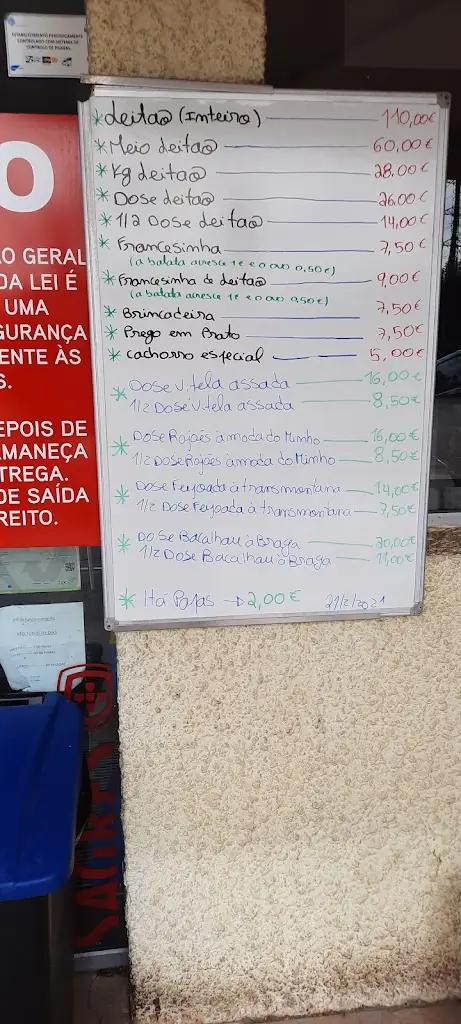 ESTABELECIMENTO PERIODICAMENTE
CONTROLADO COM SISTEMA DE
CONTROLO DE PRAGAS.
O
O GERAL
DA LEI É
UMA
GURANÇA
ENTE ÀS
S.
EPOIS DE
AMANEÇA
TREGA.
DE SAÍDA
REITO.
* Leitão (Inteiro) 110,00€
* Meio Leitão 60,00€
* Kg Leitão 28,00€
* Dose Leitão 26,00€
* 1/2 Dose Leitão 14,00€
* Francesinha 7,50€
(a batata acresce 1€ e o ovo 0,50€)
* Francesinha de Leitão 9,00€
(a batata acresce 1€ e o ovo 0,50€)
* Brincadeira 7,50€
* Prego em Prato 7,50€
* Cachorro especial 5,00€
* Dose Vitela assada 16,00€
1/2 Dose Vitela assada 8,50€
* Dose Rojões à moda do Minho 16,00€
1/2 Dose Rojões à moda do Minho 8,50€
* Dose Feijoada à transmontana 14,00€
1/2 Dose Feijoada à transmontana 7,50€
* Dose Bacalhau à Braga 20,00€
1/2 Dose Bacalhau à Braga 11,00€
* Há Papas → 2,00€ 21/2/2021
SAGRES